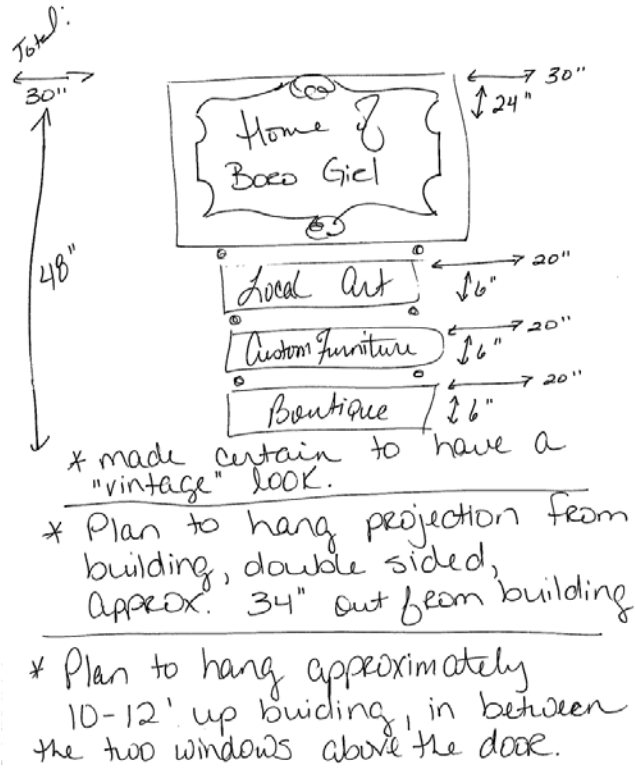 Total:
30"
30"
24"
Home &
Boro Girl
48"
Local Art
20"
6"
Custom Furniture
20"
6"
Boutique
20"
6"
* made certain to have a
"vintage" look.
* Plan to hang projection from
building, double sided,
approx. 34" out from building
* Plan to hang approximately
10-12' up buiding, in between
the two windows above the door.